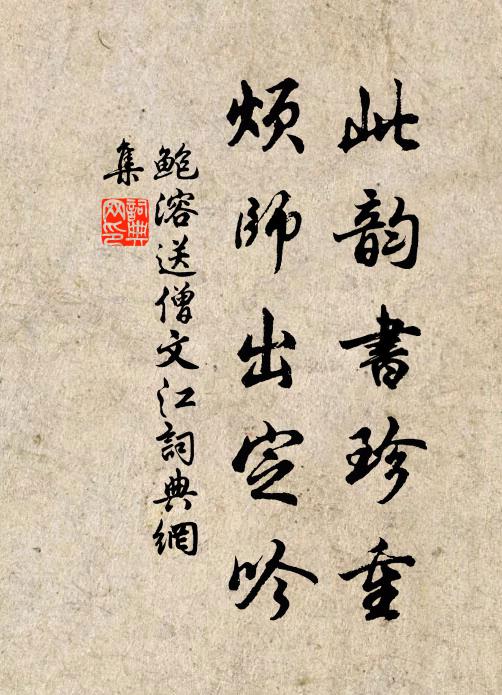 此韵書珍重
煩師出定吟
鲍溶送僧文江詞典網
集
詞典
网印